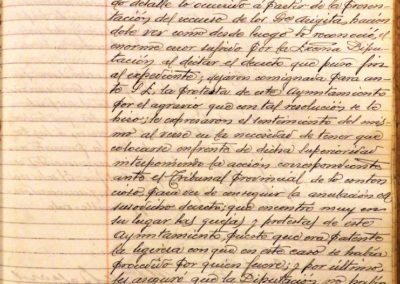 do detalle lo ocurrido á partir de la presen-
tación del recurso de los Sres. Azigita, hacien
dole ver como desde luego se reconoció, el
enorme error sufrido por la Excma. Dipu-
tación al dictar el decreto que puso fin
al expediente; dejaron consignada para an-
te S.E. la protesta de este Ayuntamiento
por el agravio que con tal resolución se le
hizo; le expresaron el sentimiento del mis-
mo al verse en la necesidad de tener que
colocarse enfrente de dicha Superioridad
interponiendo la acción correspondiente
ante el Tribunal Provincial de lo conten
cioso para ver de conseguir la anulación del
susodicho decreto; que encontró muy en
su lugar las quejas y protestas de este
Ayuntamiento, puesto que era patente
la ligereza con que en este caso se había
procedido por quien fuere; y por último,
les aseguró que la Diputación no había